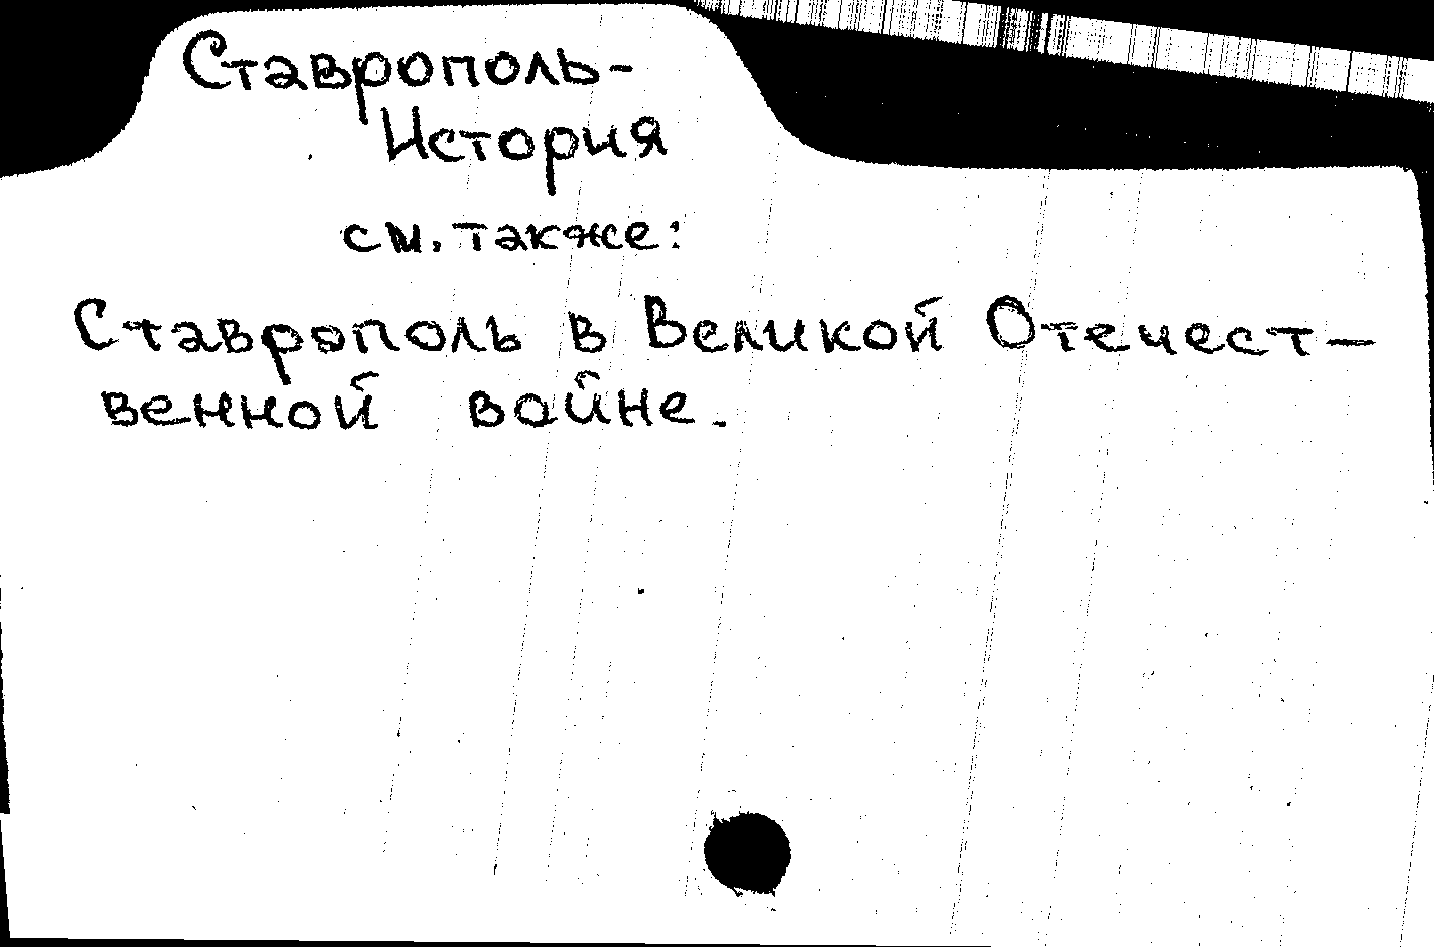 Ставрополь-
История
см. также:
Ставрополь в Великой Отечест-
венной войне.